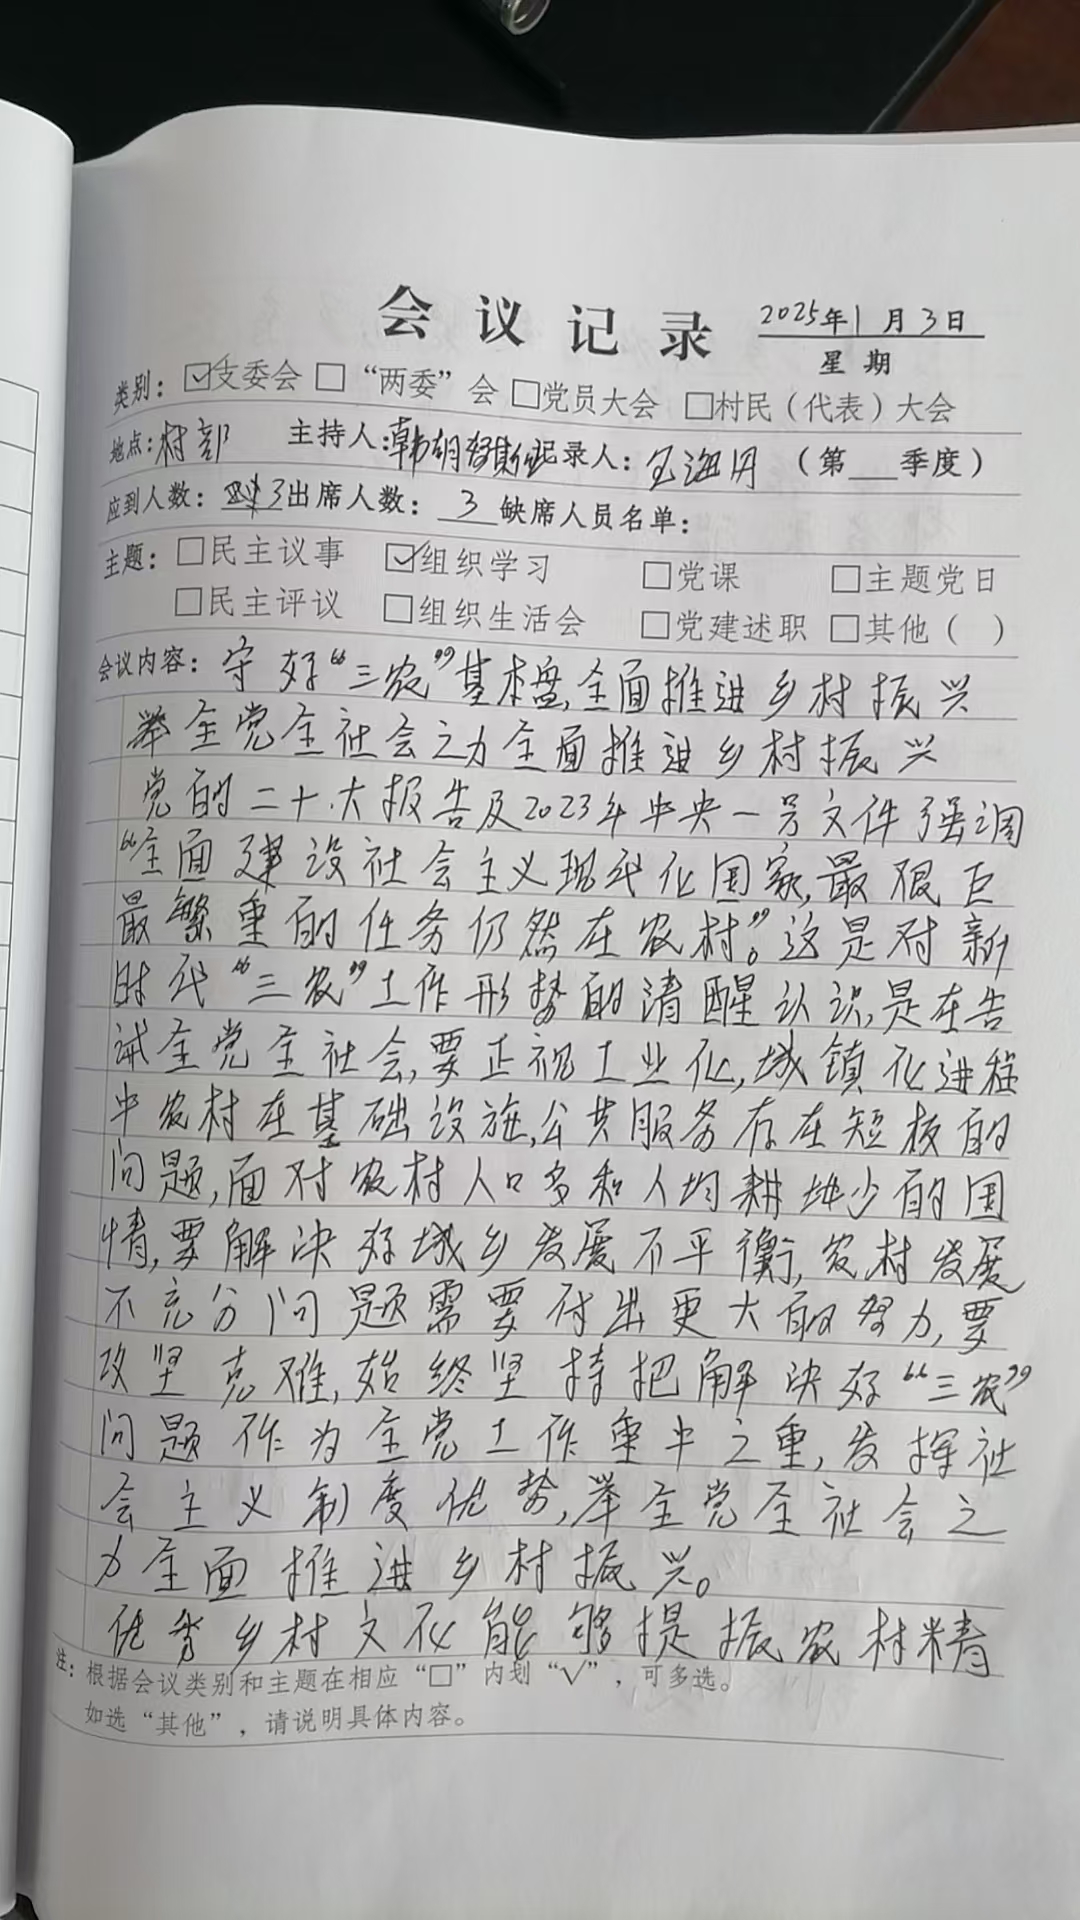 会议记录 2025年1月3日
星期
类别：☑支委会 □“两委”会 □党员大会 □村民（代表）大会
地点：村部 主持人：韩胡努斯 记录人：海月 （第 季度）
应到人数：3 出席人数：3 缺席人员名单：
主题：□民主议事 ☑组织学习 □党课 □主题党日
□民主评议 □组织生活会 □党建述职 □其他（ ）
会议内容：守好“三农”基本盘，全面推进乡村振兴
举全党全社会之力全面推进乡村振兴
党的二十大报告及2023年中央一号文件强调
“全面建设社会主义现代化国家，最艰巨
最繁重的任务仍然在农村。”这是对新
时代“三农”工作形势的清醒认识，是在告
诫全党全社会，要正视工业化，城镇化进程
中农村在基础设施，公共服务存在短板的
问题，面对农村人口多和人均耕地少的国
情，要解决好城乡发展不平衡，农村发展
不充分问题需要付出更大的努力，要
攻坚克难，始终坚持把解决好“三农”
问题作为全党工作重中之重，发挥社
会主义制度优势，举全党全社会之
力全面推进乡村振兴。
优秀乡村文化能够提振农村精
注：根据会议类别和主题在相应“□”内划“√”，可多选。
如选“其他”，请说明具体内容。